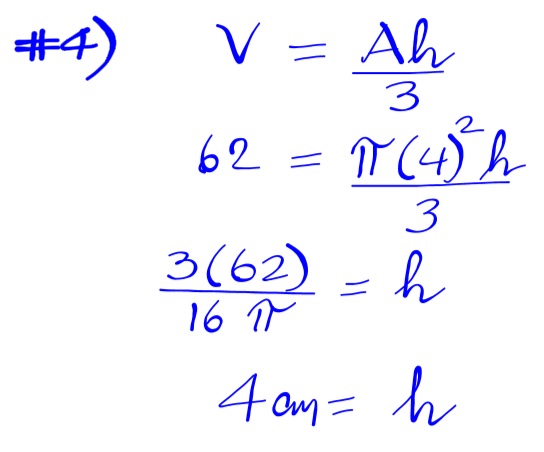 #4) V = Ah/3
62 = π(4)²h/3
3(62)/16 π = h
4 cm = h